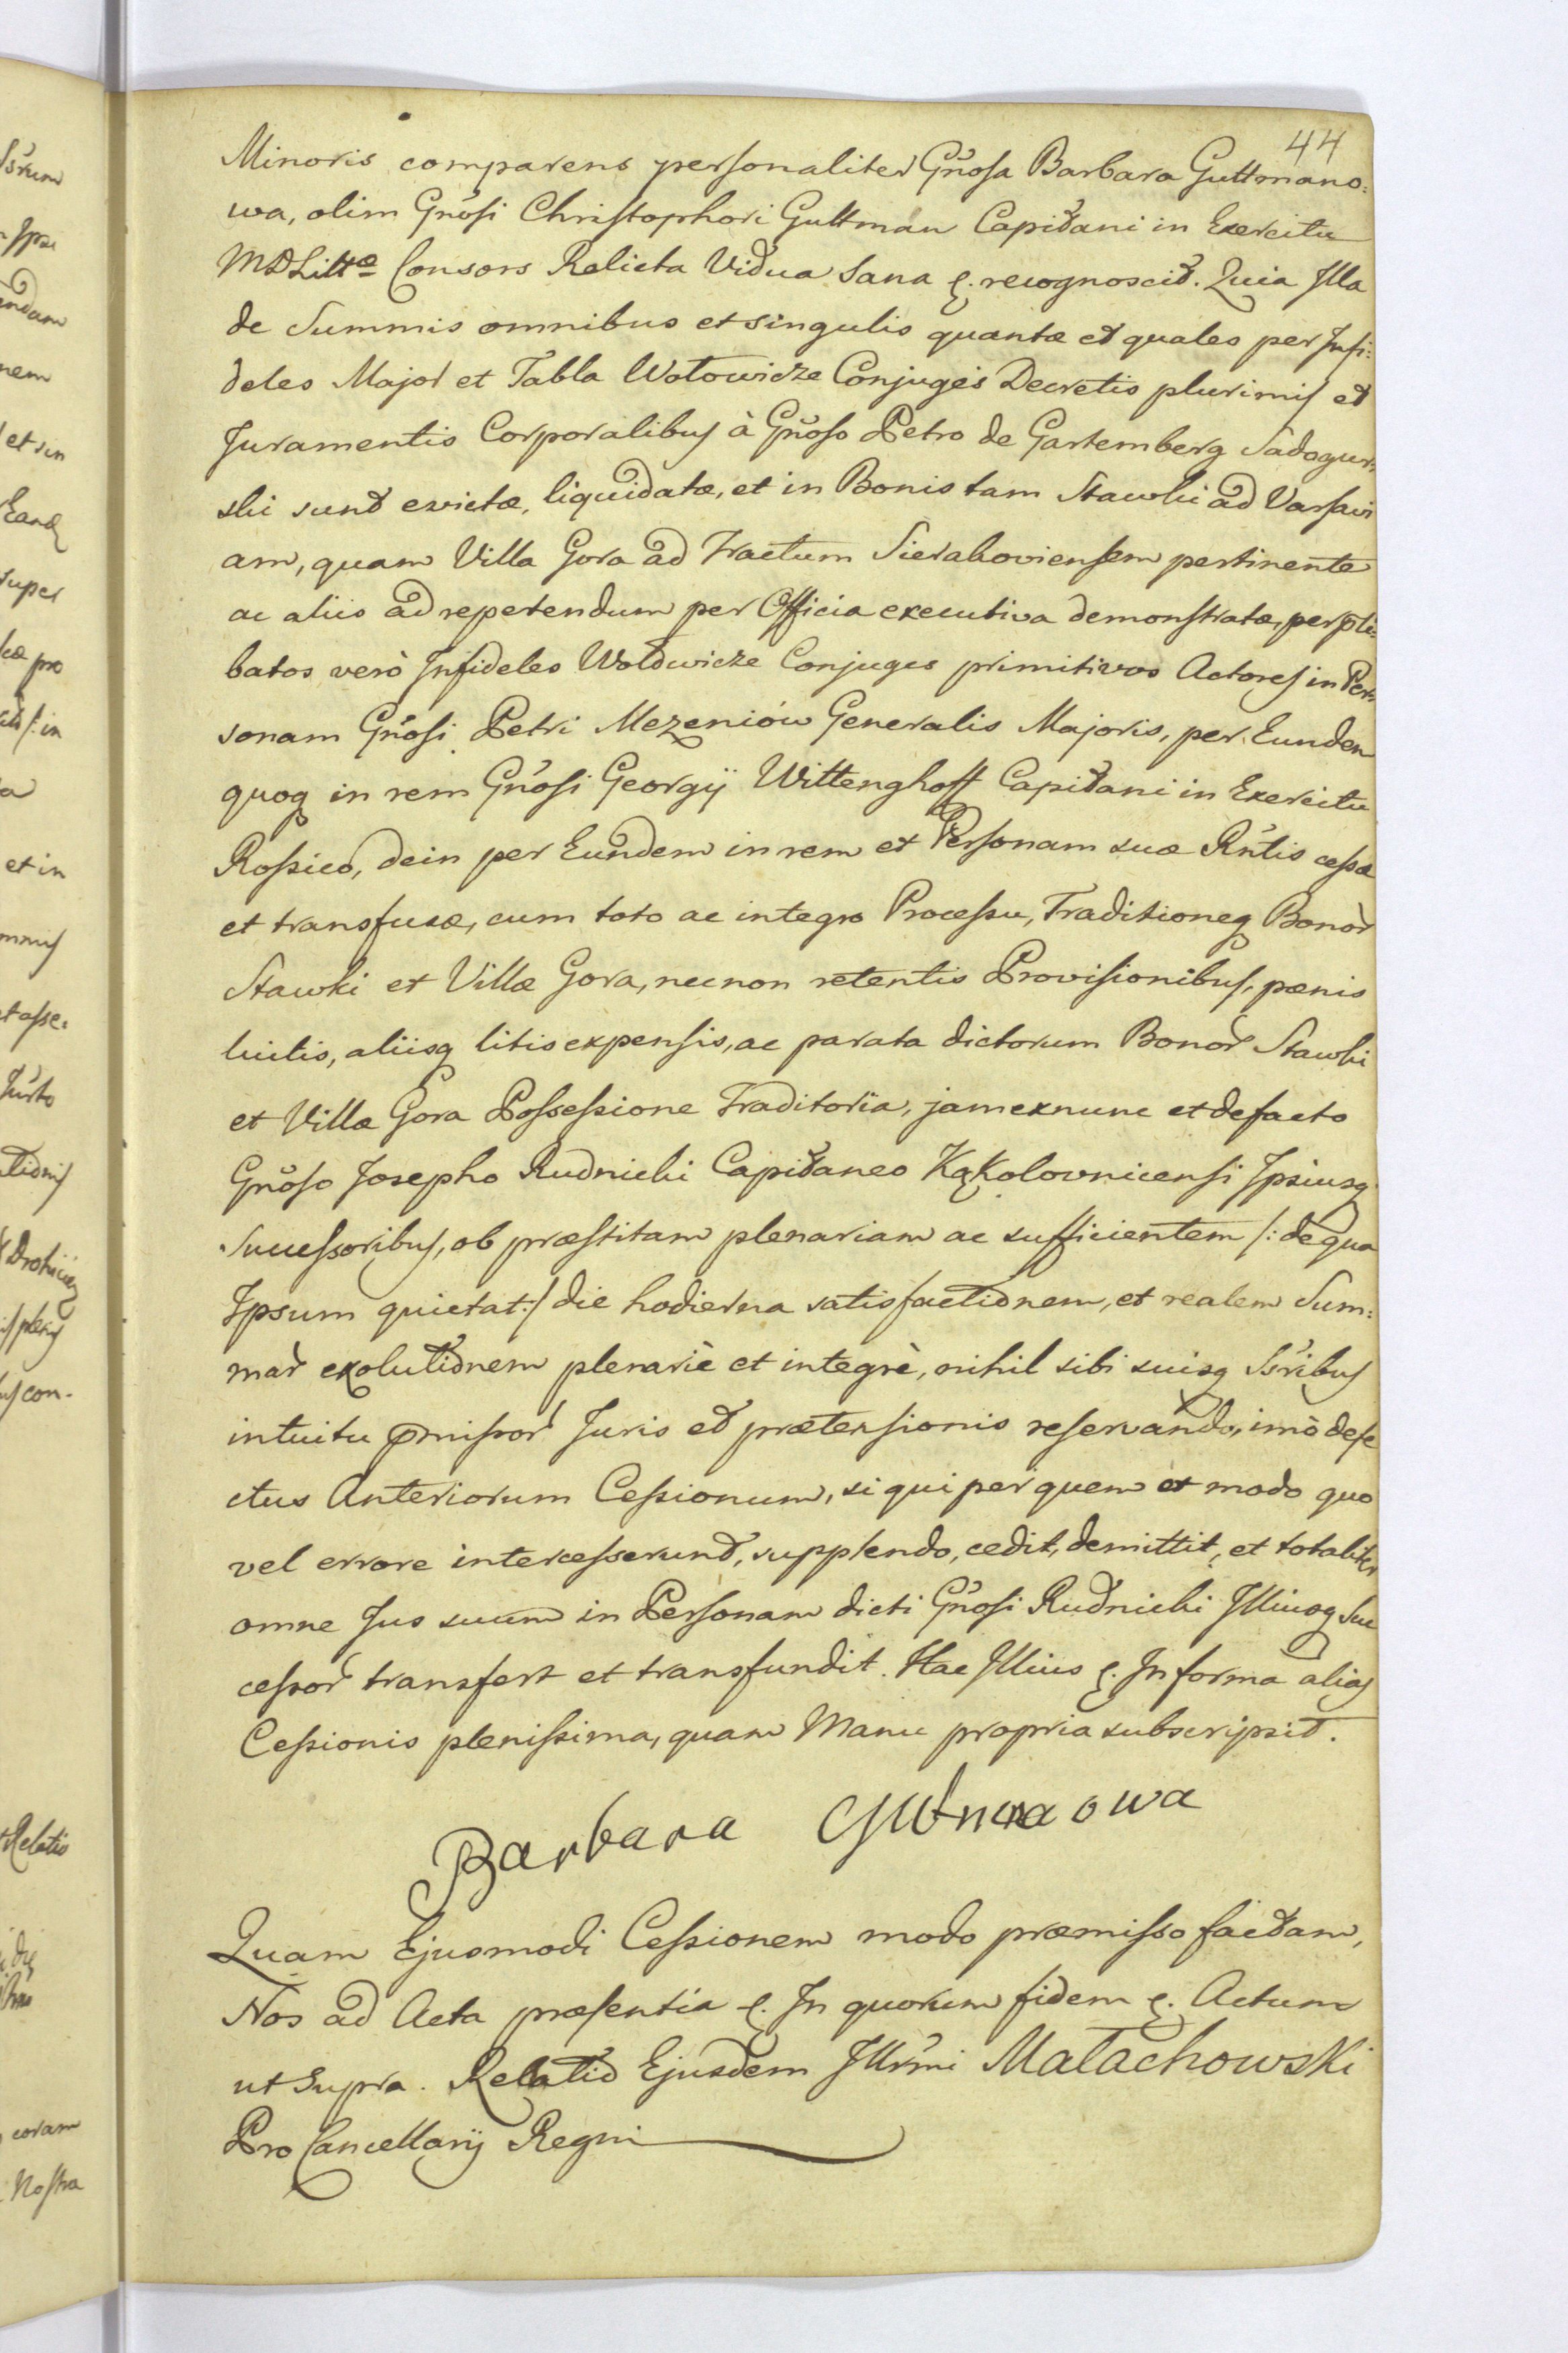 44
Minoris comparens personaliter Gnosa Barbara Guttmano:
wa, olim Gnosi Christophori Guttman Capitani in Exercitu
MDLittæ Consors Relicta Vidua Sana &. recognoscit. Quia Illa
de Summis omnibus et singulis quantæ et quales per Infi:
deles Major et Tabla Wołowicze Conjuges Decretis plurimis et
Juramentis Corporalibus à Gnoso Petro de Gartemberg Sadogur:
ski sunt evictæ, liquidatæ, et in Bonis tam Stawki ad Varsavi
am, quam Villa Gora ad Tractum Sierakoviensem pertinente
ac aliis ad repetendum per Officia executiva demonstratæ, per præli:
batos verò Infideles Wołowicze Conjuges primitivos Actores in Per:
sonam Gnosi Petri Mezeniów Generalis Majoris, per Eundem
quoq in rem Gnosi Georgij Wittenghoff Capitani in Exercitu
Rossico, dein per Eundem in rem et Personam suæ Rntis cessæ
et transfusæ, cum toto ac integro Processu, Traditioneq Bonor
Stawki et Villæ Gora, necnon retentis Provisionibus, pænis
luitis, aliisq litis expensis, ac parata dictorum Bonor Stawki
et Villa Gora Possessione Traditoria, jam exnunc et de facto
Gnoso Josepho Rudnicki Capitaneo Kąkolovnicensi Ipsiusq
Successoribus, ob præstitam plenariam ac sufficientem /: de qua
Ipsum quietat :/ die hodierna satisfactionem, et realem Sum:
mar exolutionem plenariè et integrè, nihil sibi suisq Ssribus
intuitu præmissor Juris et prætensionis reservando, imò defe
ctus Anteriorum Cessionum, si qui per quem et modo quo
vel errore intercesserunt, supplendo, cedit, demittit, et totaliter
omne Jus suum in Personam dicti Gnosi Rudnicki Illiusq Suc
cessor transfert et transfundit. Hac Illius &. In forma alias
Cessionis plenissima, quam Manu propria subscripsit.
Barbara Gutmanowa
Quam Ejusmodi Cessionem modo præmisso factam,
Nos ad Acta præsentia &. In quorum fidem &. Actum
ut supra. Relatio Ejusdem Illrmi Małachowski
Pro Cancellarij Regni